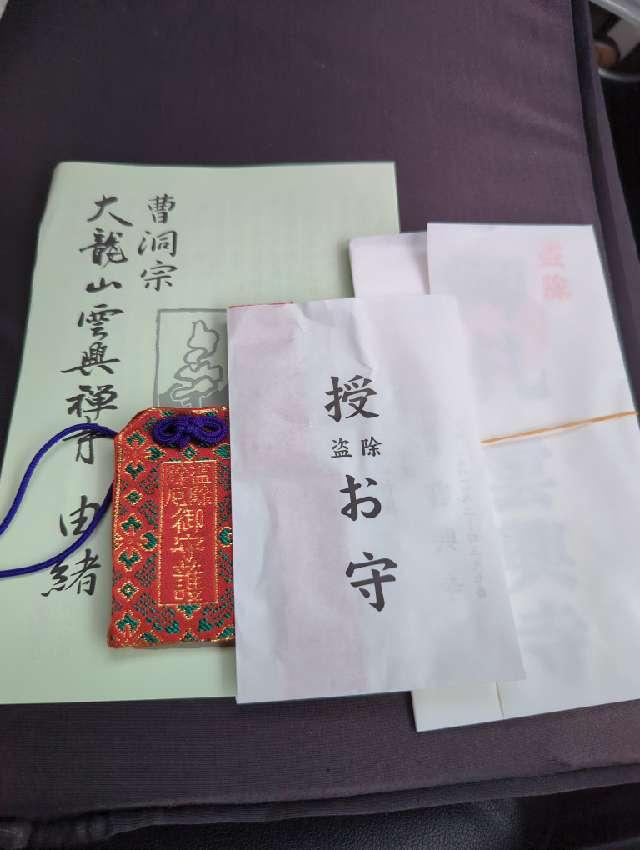 曹洞宗
大龍山雲興禅寺 由緒
盗除
御守護
授
盗除
お守
盗除